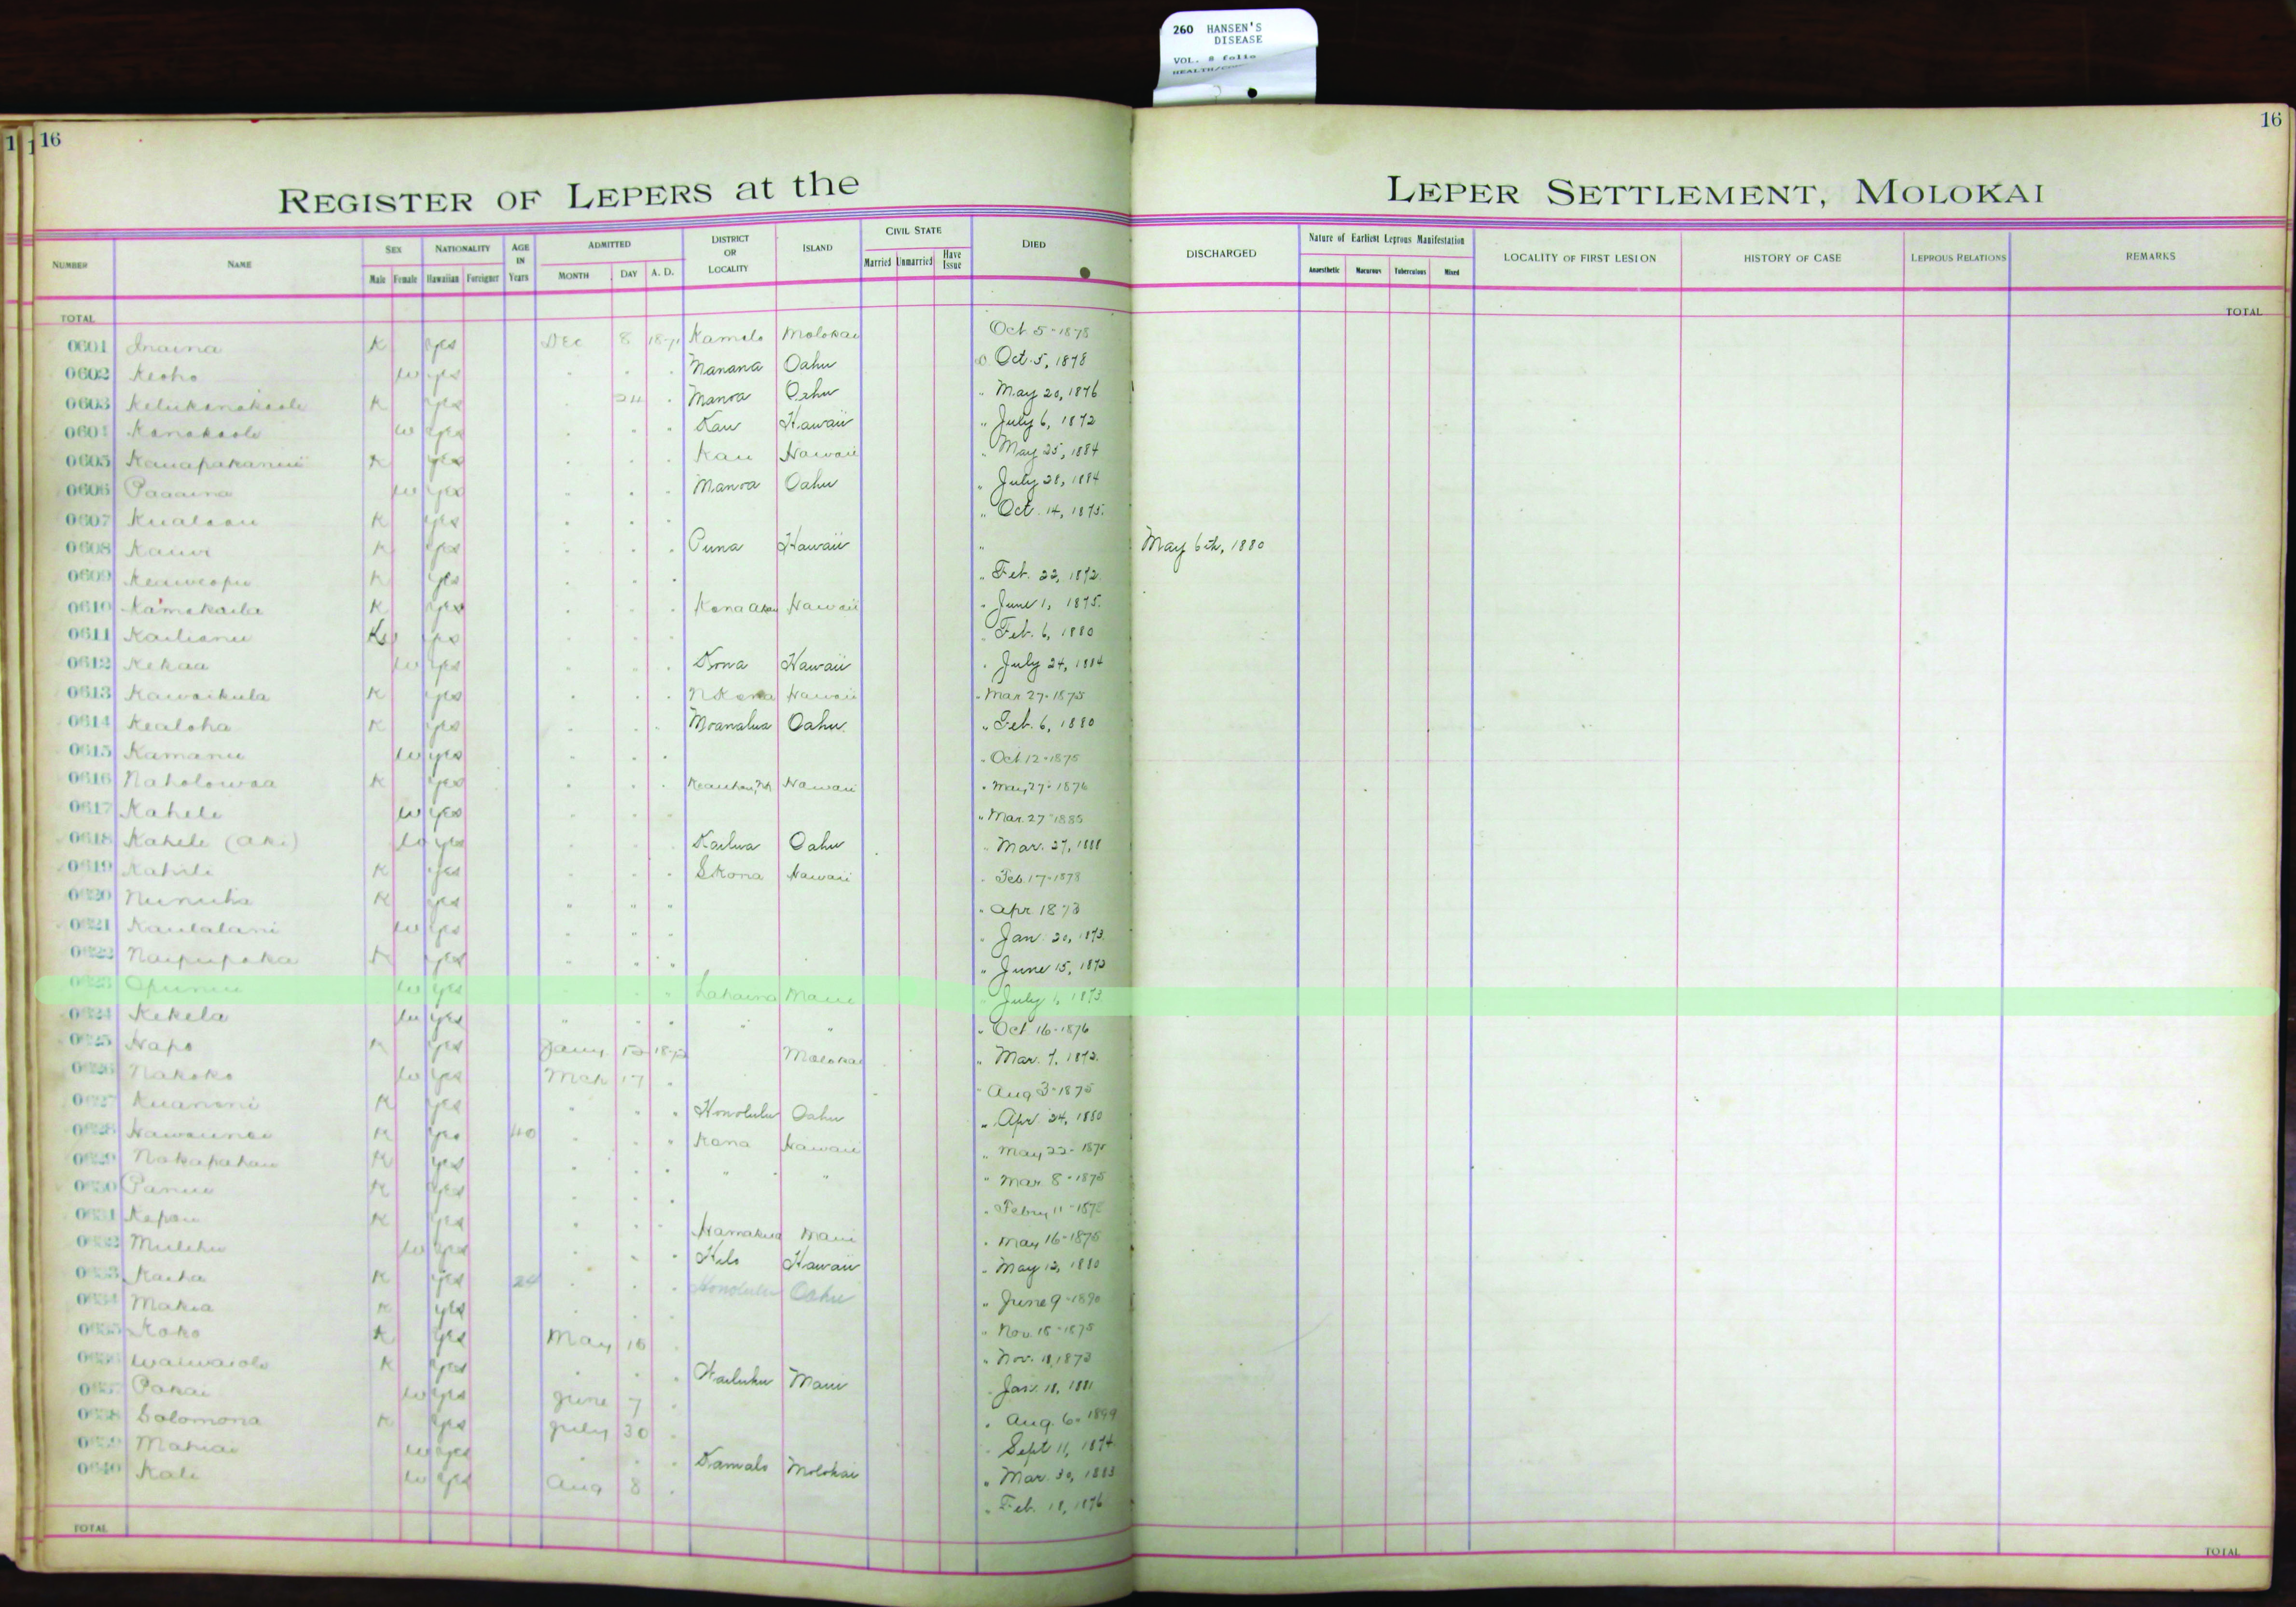 260 HANSEN'S
DISEASE
VOL. 8 folio
16
16
REGISTER OF LEPERS at the LEPER SETTLEMENT, MOLOKAI
NUMBER NAME SEX Male Female NATIONALITY Hawaiian Foreigner AGE IN Years ADMITTED MONTH DAY A. D. DISTRICT OR LOCALITY ISLAND CIVIL STATE Married Unmarried Have Issue DIED DISCHARGED Nature of Earliest Leprous Manifestation Anaesthetic Macurous Tuberculous Mixed LOCALITY OF FIRST LESION HISTORY OF CASE LEPROUS RELATIONS REMARKS
TOTAL TOTAL
0601 Inaina K yes Dec 8 Kamalo Molokai Oct 5-1878
0602 Keoho w yes Manana Oahu Oct. 5, 1878
0603 K yes 24 Manoa Oahu " May 20, 1876
0604 Kanakaole w yes Kau Hawaii " July 6, 1872
0605 K yes Kau Hawaii " May 25, 1884
0606 Paaaina w yes Manoa Oahu " July 28, 1884
0607 K yes " Oct. 14, 1875.
0608 K yes Puna Hawaii " May 6th, 1880
0609 K yes " Feb. 22, 1872.
0610 K yes Kona Akau Hawaii " June 1, 1875.
0611 yes " Feb. 6, 1880
0612 Kekaa w yes Kona Hawaii " July 24, 1884
0613 Kawaikula K yes N Kona Hawaii " Mar 27-1875
0614 Kealoha K yes Moanalua Oahu " Feb. 6, 1880
0615 Kamanu w yes " Oct 12-1875
0616 Naholowaa K yes Hawaii " May 27-1876
0617 Kahele w yes " Mar. 27-1885
0618 Kahele (Aki) w yes Kailua Oahu " Mar. 27, 1888
0619 Kahili K yes S Kona Hawaii " Feb. 17-1878
0620 K yes " " " " Apr 1873
0621 Kaulalani w yes " Jan. 20, 1873.
0622 K yes " June 15, 1873
0623 Opunui w yes Lahaina Maui " July 1, 1873
0624 Kekela w yes " " " Oct 16-1876
0625 Hapo K yes Jany Molokai " Mar. 7, 1872.
0626 Nakoko w yes Mch 17 " Aug 3-1875
0627 K yes Honolulu Oahu " Apr. 24, 1880
0628 K yes 40 Kona Hawaii " May 22-1875
0629 Nakapahau K yes " " " Mar. 8-1875
0630 Panui K yes " Febry 11-1875
0631 K yes Hamakua Maui " May 16-1875
0632 w yes Hilo Hawaii " May 12, 1880
0633 Kaiha K yes 24 Honolulu Oahu " June 9-1890
0634 Makia K yes " Nov. 18-1875
0635 Koko K yes May " Nov. 11, 1873
0636 Waiwaiole K yes Wailuku Maui " Jan. 18, 1881
0637 Pakai w yes June 7 " Aug. 6-1899
0638 Solomona K yes July 30 " Sept 11, 1874
0639 Mahiai w yes Kamalo Molokai " Mar. 30, 1883
0640 Kali w yes Aug 8 " Feb. 18, 1876
TOTAL TOTAL